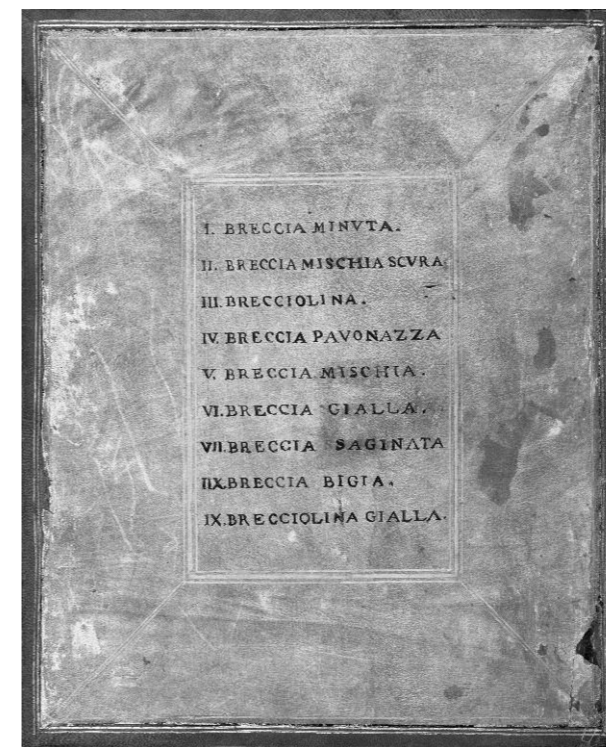 I. BRECCIA MINVTA.
II. BRECCIA MISCHIA SCVRA
III. BRECCIOLINA.
IV. BRECCIA PAVONAZZA
V. BRECCIA MISCHIA.
VI. BRECCIA GIALLA.
VII. BRECCIA SAGINATA
IIX. BRECCIA BIGIA.
IX. BRECCIOLINA GIALLA.